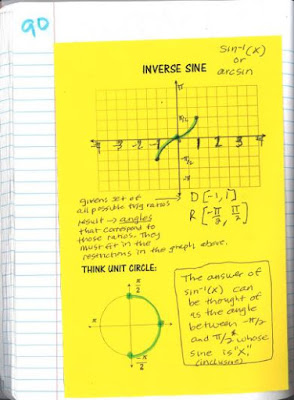 90
sin⁻¹(x)
or
arcsin
INVERSE SINE
π
π/2
-4 -3 -2 -1 1 2 3 4
-π/2
-π
givens set of
all possible trig ratios
→ D [-1, 1]
R [-π/2, π/2]
result → angles
that correspond to
those ratios. They
must fit in the
restrictions in the graph above.
THINK UNIT CIRCLE:
π/2
-π/2
The answer of
sin⁻¹(x) can
be thought of
as the angle
between -π/2
and π/2* whose
sine is "x."
(inclusive)